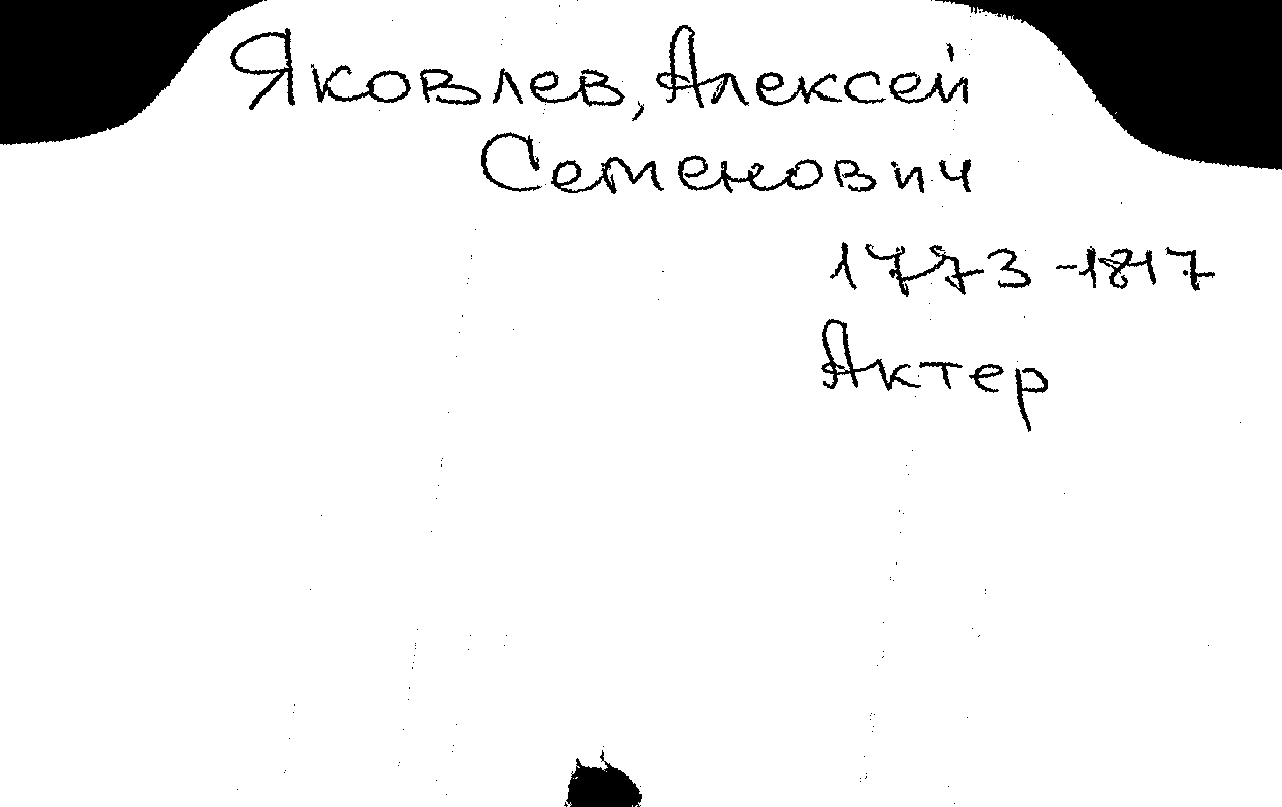 Яковлев, Алексей
Семенович
1773-1817
Актер